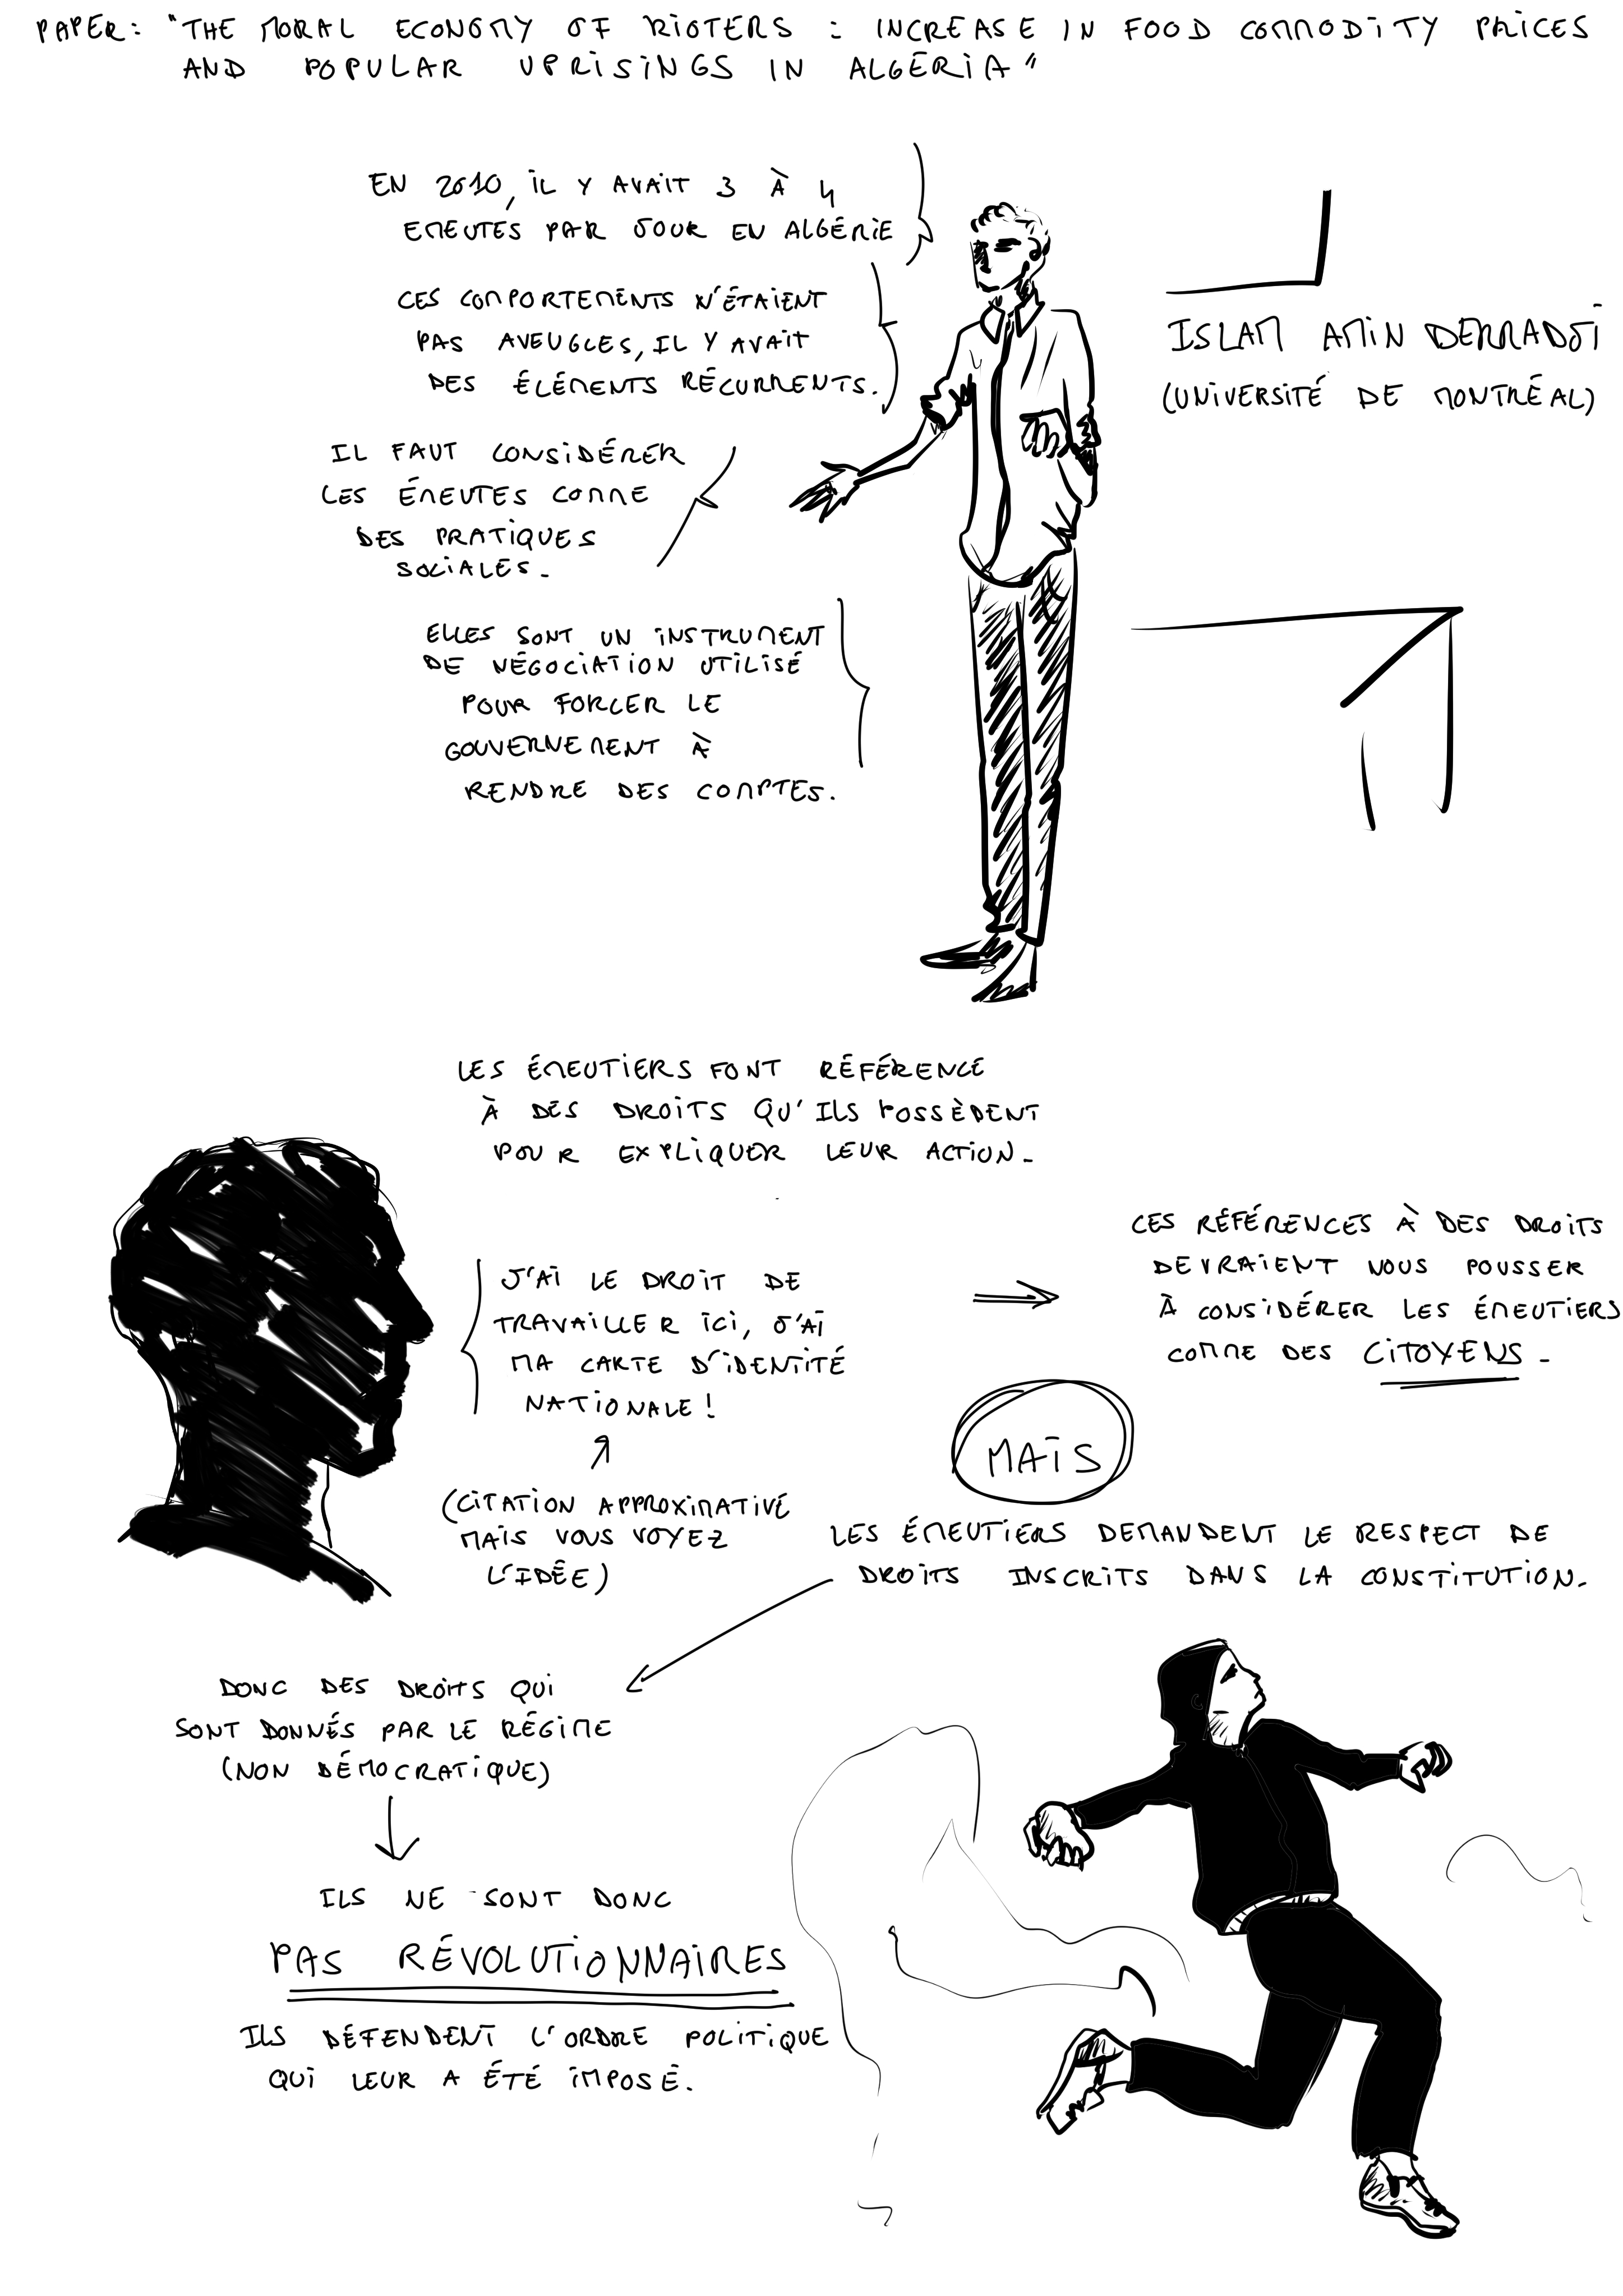 PAPER: "THE MORAL ECONOMY OF RIOTERS : INCREASE IN FOOD COMMODITY PRICES
AND POPULAR UPRISINGS IN ALGÉRIA"
EN 2010, IL Y AVAIT 3 À 4
EMEUTES PAR JOUR EN ALGÉRIE
CES COMPORTEMENTS N'ÉTAIENT
PAS AVEUGLES, IL Y AVAIT
DES ÉLÉMENTS RÉCURRENTS.
ISLAM AMIN DERRADJI
(UNIVERSITÉ DE MONTRÉAL)
IL FAUT CONSIDÉRER
LES ÉMEUTES COMME
DES PRATIQUES
SOCIALES.
ELLES SONT UN INSTRUMENT
DE NÉGOCIATION UTILISÉ
POUR FORCER LE
GOUVERNEMENT À
RENDRE DES COMPTES.
LES ÉMEUTIERS FONT RÉFÉRENCE
À DES DROITS QU'ILS POSSÈDENT
POUR EXPLIQUER LEUR ACTION.
J'AI LE DROIT DE
TRAVAILLER ICI, J'AI
MA CARTE D'IDENTITÉ
NATIONALE !
(CITATION APPROXIMATIVE
MAIS VOUS VOYEZ
L'IDÉE)
CES RÉFÉRENCES À DES DROITS
DEVRAIENT NOUS POUSSER
À CONSIDÉRER LES ÉMEUTIERS
COMME DES CITOYENS.
MAIS
LES ÉMEUTIERS DEMANDENT LE RESPECT DE
DROITS INSCRITS DANS LA CONSTITUTION.
DONC DES DROITS QUI
SONT DONNÉS PAR LE RÉGIME
(NON DÉMOCRATIQUE)
ILS NE SONT DONC
PAS RÉVOLUTIONNAIRES
ILS DÉFENDENT L'ORDRE POLITIQUE
QUI LEUR A ÉTÉ IMPOSÉ.